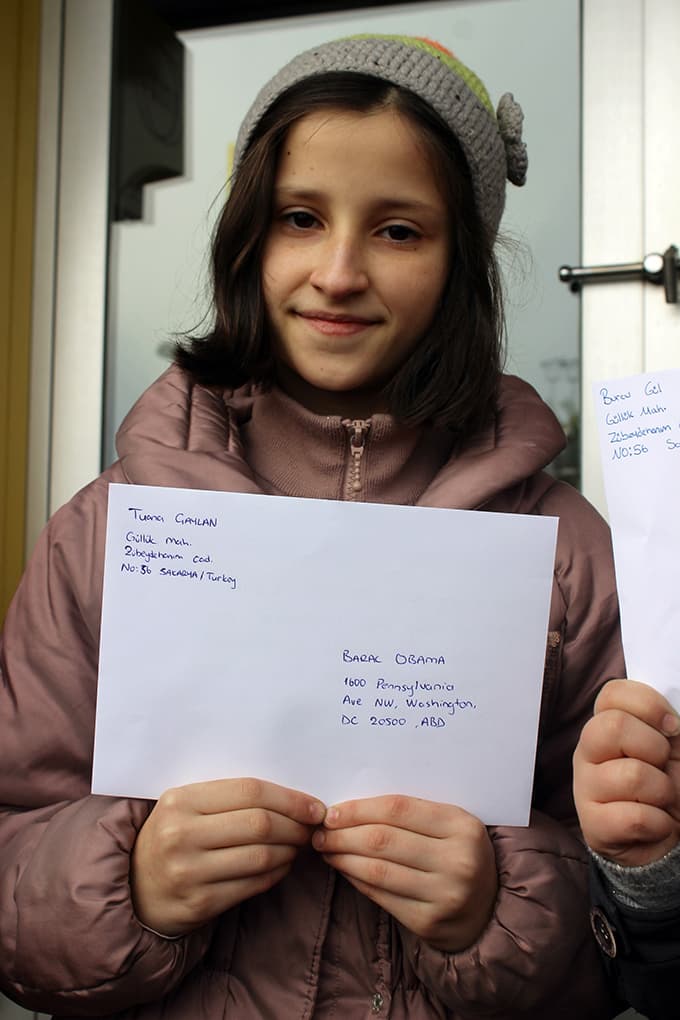 Tuana GAYLAN
Güllük Mah.
Zübeydehanım cad.
No:56 SAKARYA/Turkey
BARAC OBAMA
1600 Pennsylvania
Ave NW, Washington,
DC 20500 ,ABD
Burcu Gül
Güllük Mah.
Zübeydehanım
NO:56